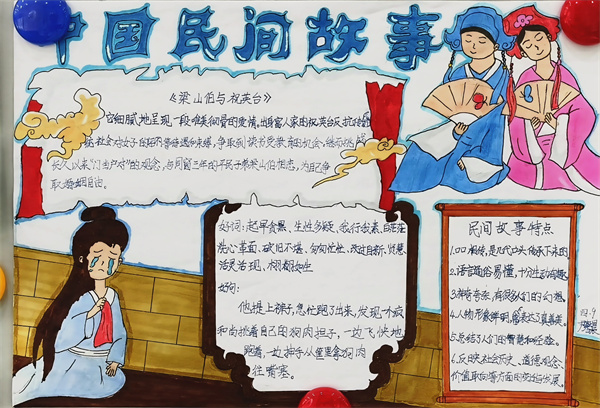 中国民间故事
《梁山伯与祝英台》
它细腻地呈现一段唯美绚骨的爱情,出身富人家的祝英台反抗
社会对女子的 不等待遇和束缚,争取到读书受教育的机会,继而挑战
长久以来“门当户对”的观念,与同窗三年的平民子弟梁山伯相恋,为自己争
取婚姻自由。
好词:起早贪黑、生性多疑、我行我素、自由自在
洗心革面、破旧不堪、匆匆忙忙、改过自新、贤慧
活灵活现、栩栩如生
好句:
他提上裤子,急忙跑了出来,发现一个疯
和尚挑着自己的狗肉担子,一边飞快地
跑着,一边伸手从筐里拿狗肉
往嘴塞。
民间故事特点
1.口口相传,是几代口头传承下来的
2.语言通俗易懂,十分生动有趣
3.神奇夸张,有很多人们的幻想。
4.人物形象鲜明,像表达了真善美。
5.总结了人们的智慧和经验。
6.反映社会历史、道德观念、
价值取向等方面的变迁与发展。